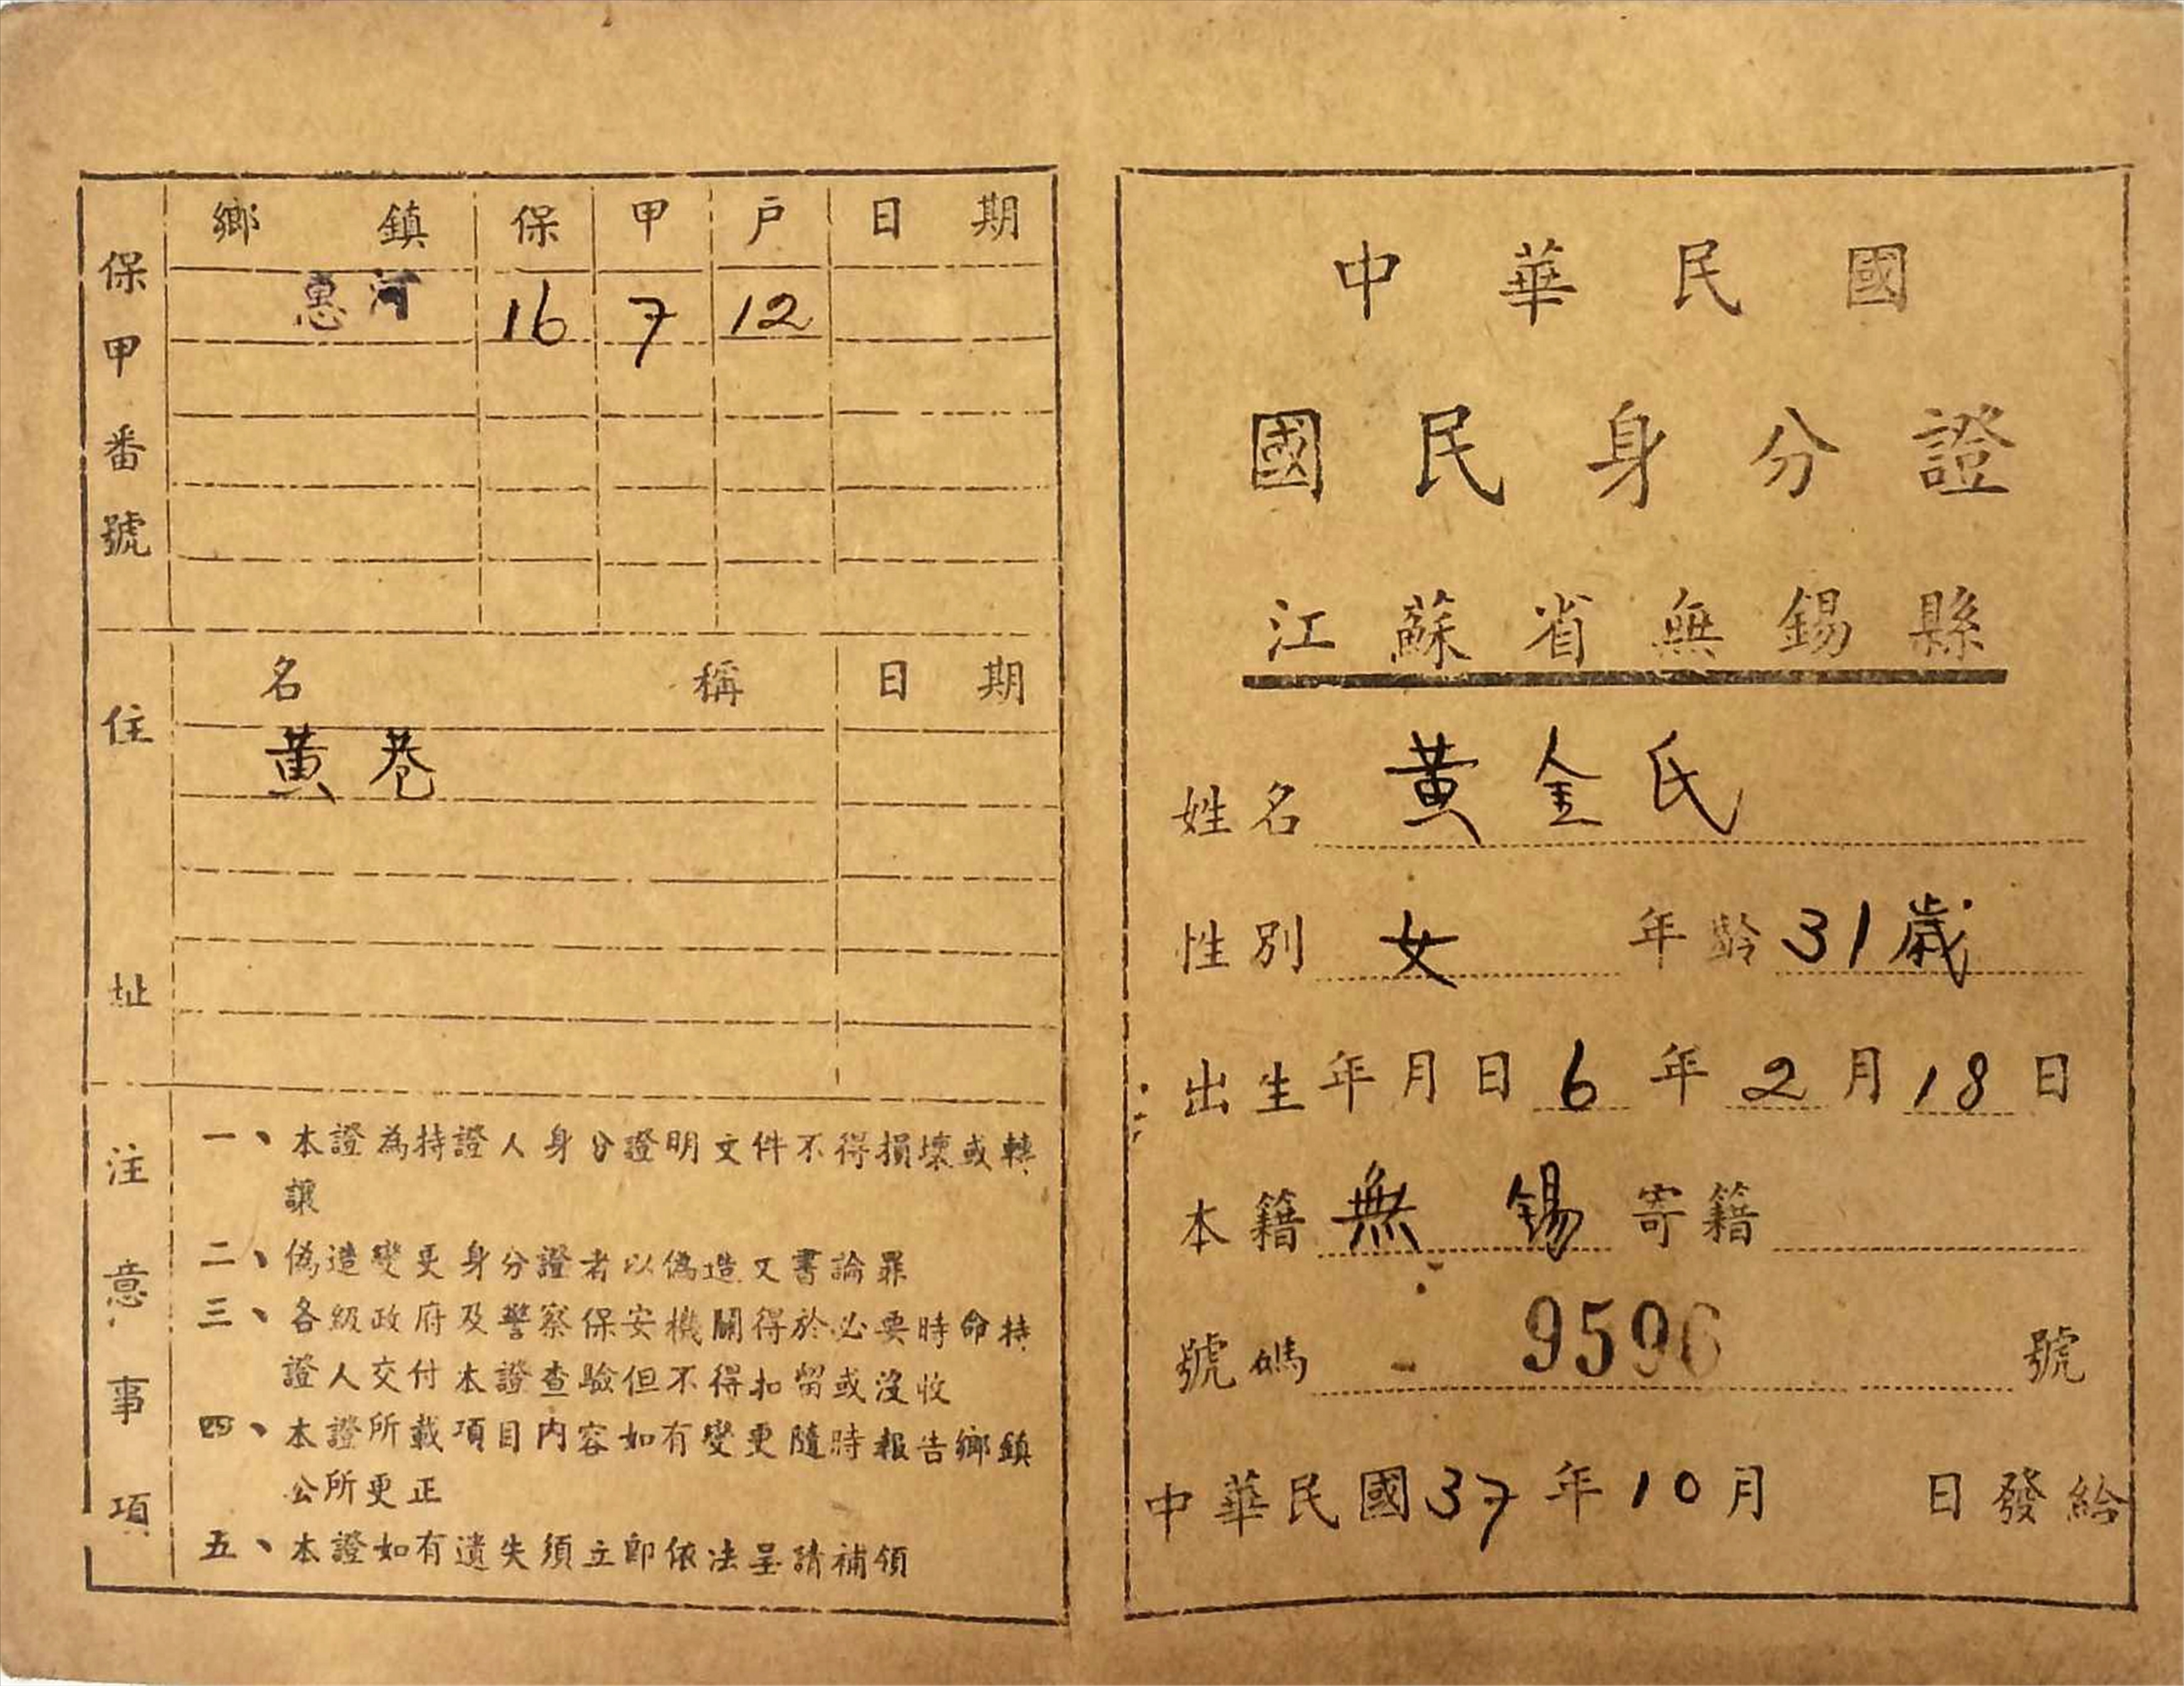 保甲番號
鄉 鎮 保 甲 戶 日 期
惠河 16 7 12
住址
名 稱 日 期
黃巷
注意事項
一、本證為持證人身分證明文件不得損壞或轉
讓
二、偽造變更身分證者以偽造文書論罪
三、各級政府及警察保安機關得於必要時命持
證人交付本證查驗但不得扣留或沒收
四、本證所載項目內容如有變更隨時報告鄉鎮
公所更正
五、本證如有遺失須立即依法呈請補領
中華民國
國民身分證
江蘇省無錫縣
姓名 黃金氏
性別 女 年齡 31歲
出生年月日 6 年 2 月 18 日
本籍 無錫 寄籍
號碼 9596 號
中華民國 37 年 10 月 日發給